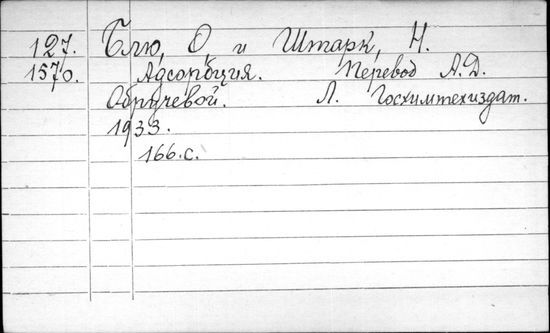 127. Блю, О, и Штарк, Н.
1570. Адсорбция. Перевод А.Д.
Обручевой. Л. Госхимтехиздат.
1933.
166.с.